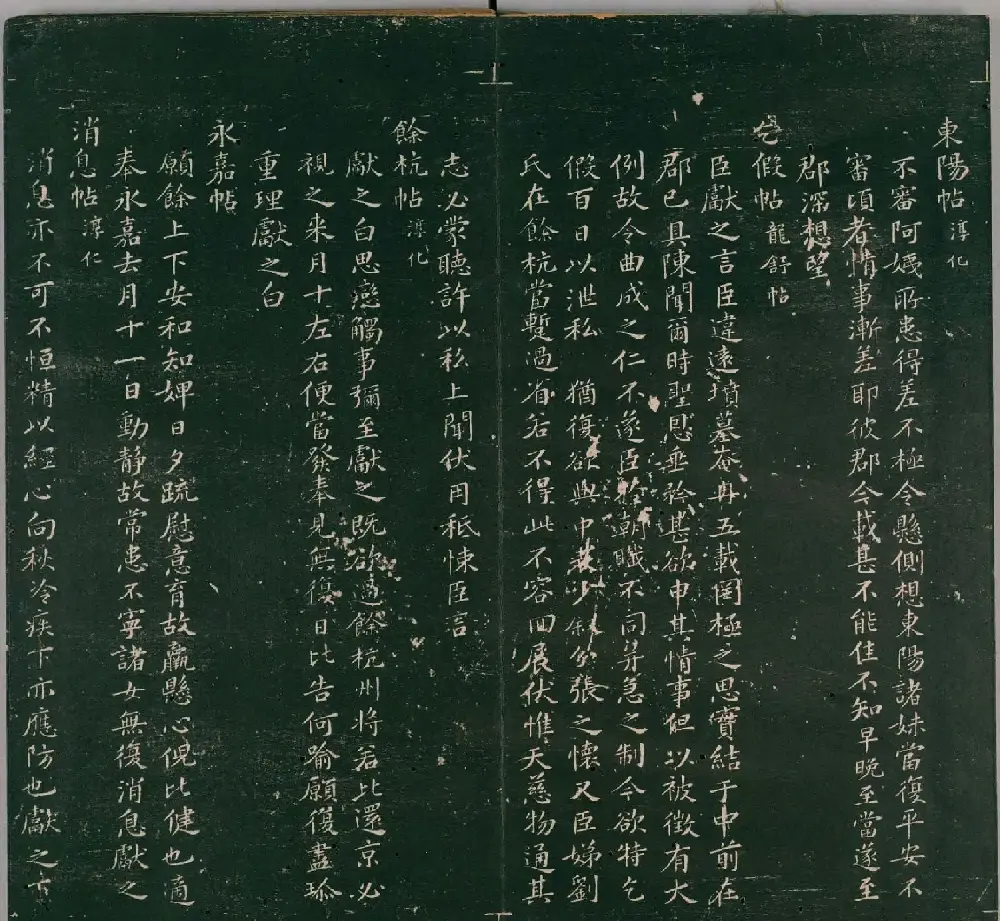 東陽帖 淳化
不審阿姨所患得差不極令懸惻想東陽諸妹當復平安不
審頃者情事漸差耶彼郡今載甚不能佳不知早晚至當遂至
郡深想望
乞假帖 龍舒帖
臣獻之言臣違遠墳墓奄冉五載罔極之思實結于中前在
郡已具陳聞爾時聖恩垂矜甚欲申其情事但以被徵有大
例故令曲成之仁不遂臣於朝職不同算急之制今欲特乞
假百日以泄私 猶復欲與中表少敘分張之懷又臣娣劉
氏在餘杭當暫過省若不得此不容回展伏惟天慈物通其
志必蒙聽許以私上聞伏用秪悚臣言
餘杭帖 淳化
獻之白思戀觸事彌至獻之既欲過餘杭州將若比還京必
視之來月十左右便當發奉見無復日比告何喻願復盡珎
重理獻之白
永嘉帖
願餘上下安和知婢日夕疏慰意育故羸懸心俔比健也適
奉永嘉去月十一日動靜故常患不寧諸女無復消息獻之
消息帖 淳化
消息亦不可不恒精以經心向秋冷疾下亦應防也獻之下